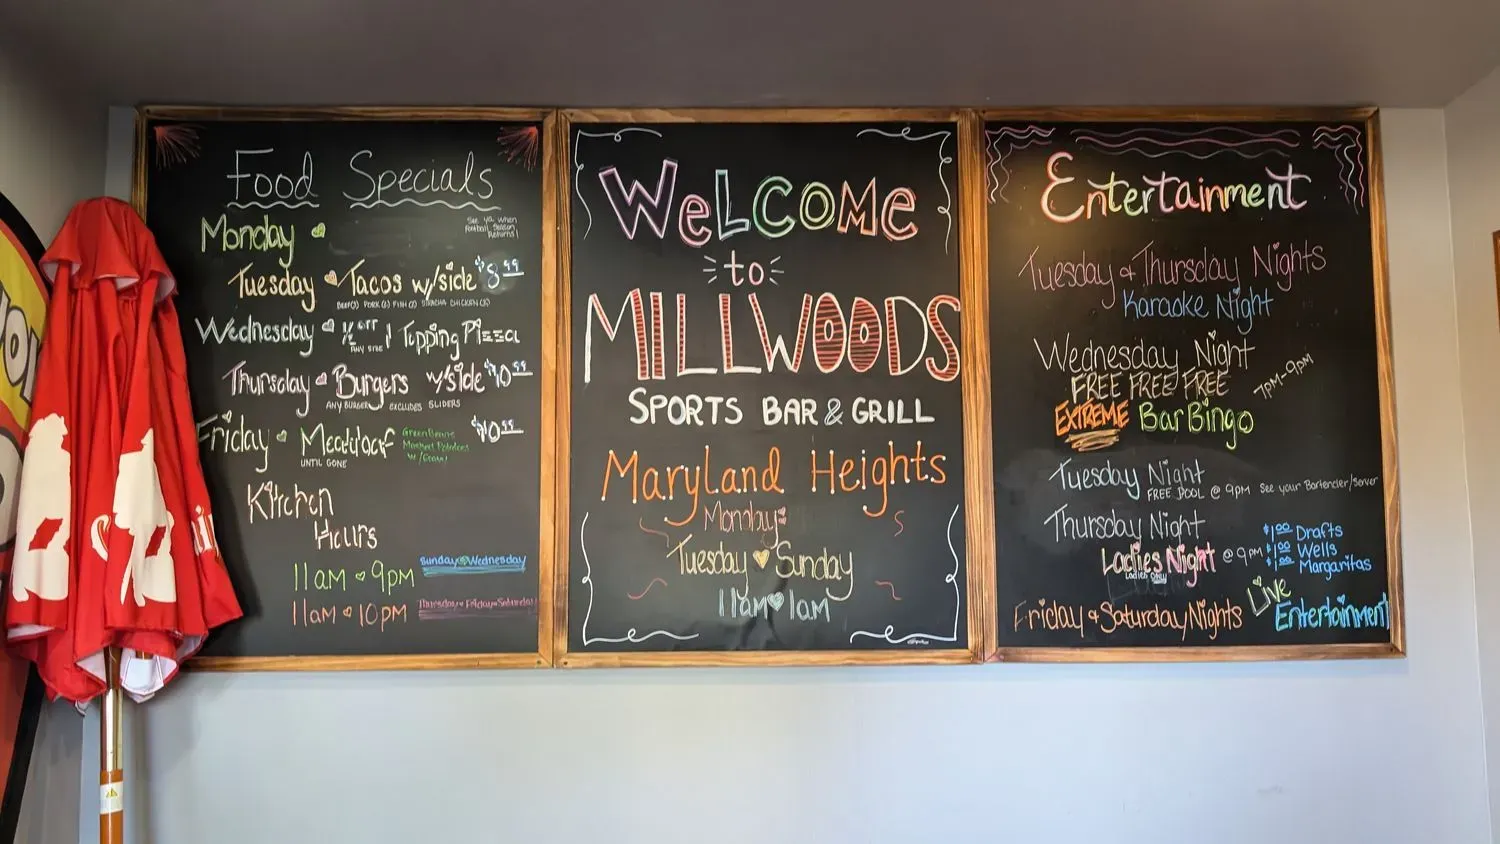 Food Specials
Monday
See ya when
football Season
Returns!
Tuesday Tacos w/side $8.99
BEEF(3) PORK(3) FISH(2) SIRACHA CHICKEN(3)
Wednesday ½ OFF 1 Topping Pizza
ANY SIZE
Thursday Burgers w/side $10.99
ANY BURGER EXCLUDES SLIDERS
Friday Meatloaf $10.99
UNTIL GONE
Green Beans
Mashed Potatoes
w/Gravy
Kitchen
Hours
11am 9pm Sunday Wednesday
11am 10pm Thursday Friday Saturday
WELCOME
to
MILLWOODS
SPORTS BAR & GRILL
Maryland Heights
Tuesday Sunday
11am 1am
Entertainment
Tuesday & Thursday Nights
Karaoke Night
Wednesday Night
FREE FREE FREE
7PM-9PM
EXTREME Bar Bingo
Tuesday Night
FREE POOL @ 9PM See your Bartender/Server
Thursday Night
Ladies Night @ 9pm
Ladies Only
$1.00 Drafts
$1.00 Wells
$1.00 Margaritas
Friday & Saturday Nights Live
Entertainment